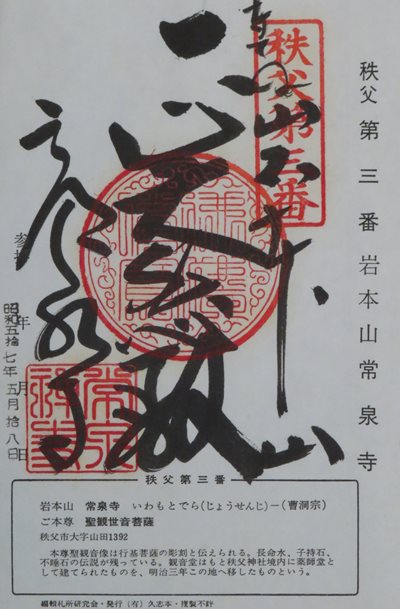 秩父第三番岩本山常泉寺
秩父第三番
岩本山
参拝 年 月 日
昭和五拾七年五月拾八日
秩父第三番
岩本山 常泉寺 いわもとでら(じょうせんじ)-(曹洞宗)
ご本尊 聖観世音菩薩
秩父市大字山田1392
本尊聖観音像は行基菩薩の彫刻と伝えられる。長命水、子持石、
不睡石の伝説が残っている。観音堂はもと秩父神社境内に薬師堂
として建てられたものを、明治三年この地へ移したものという。
編輯札所研究会・発行(有)久志本・複製不許